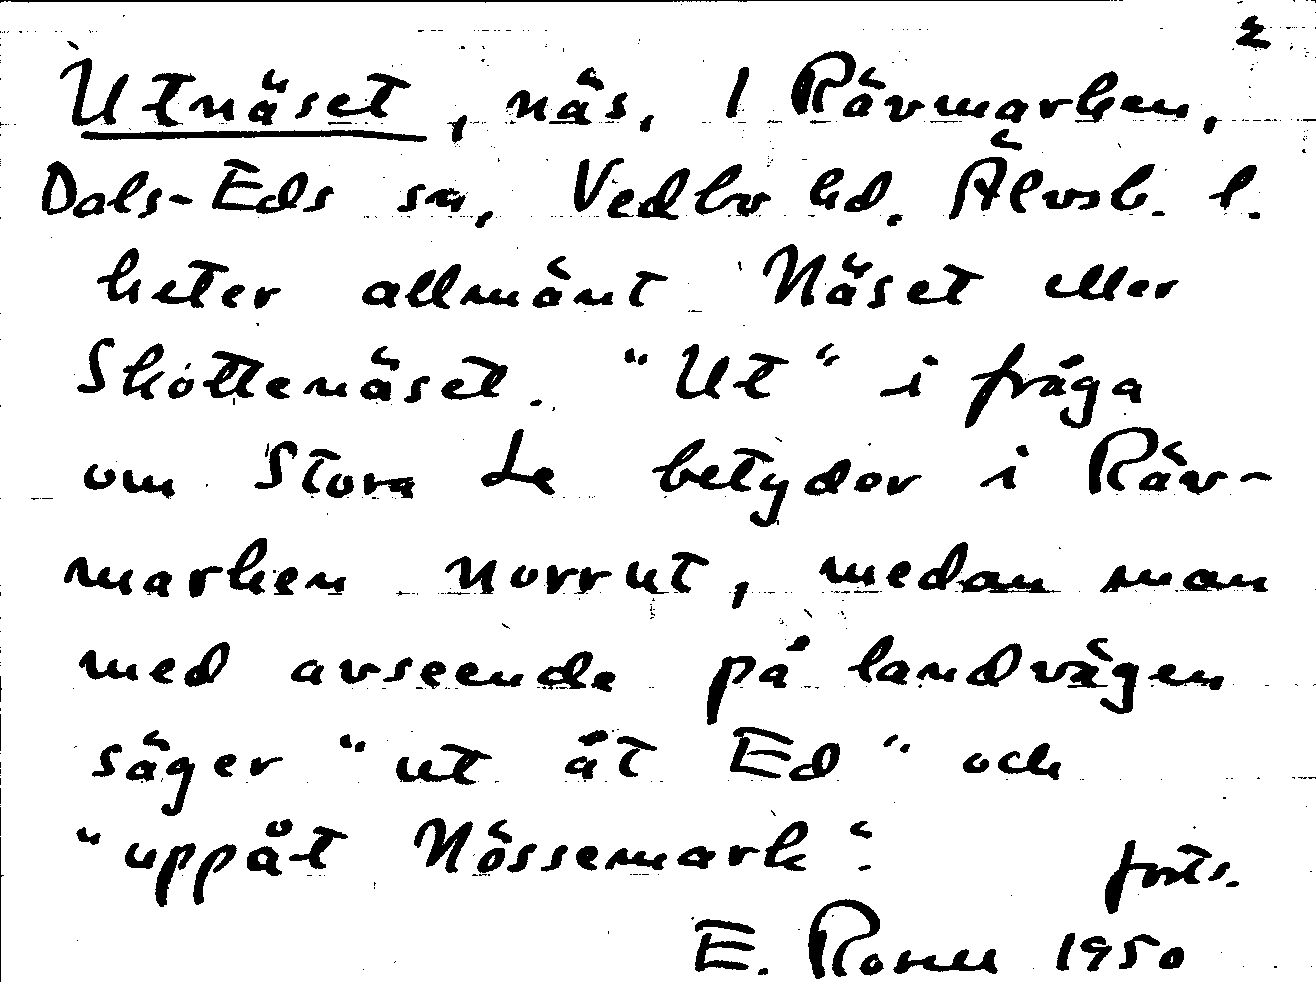 2
Utnäset, näs, I Rävmarken,
Dals-Eds sn, Vedbo hd. Älvsb. l.
heter allmänt Näset eller
Skottenäset. "Ut" i fråga
om Stora Le betyder i Räv-
marken norrut, medan man
med avseende på landvägen
säger "ut åt Ed" och
"uppåt Nössemark".
forts.
E. Rosell 1950